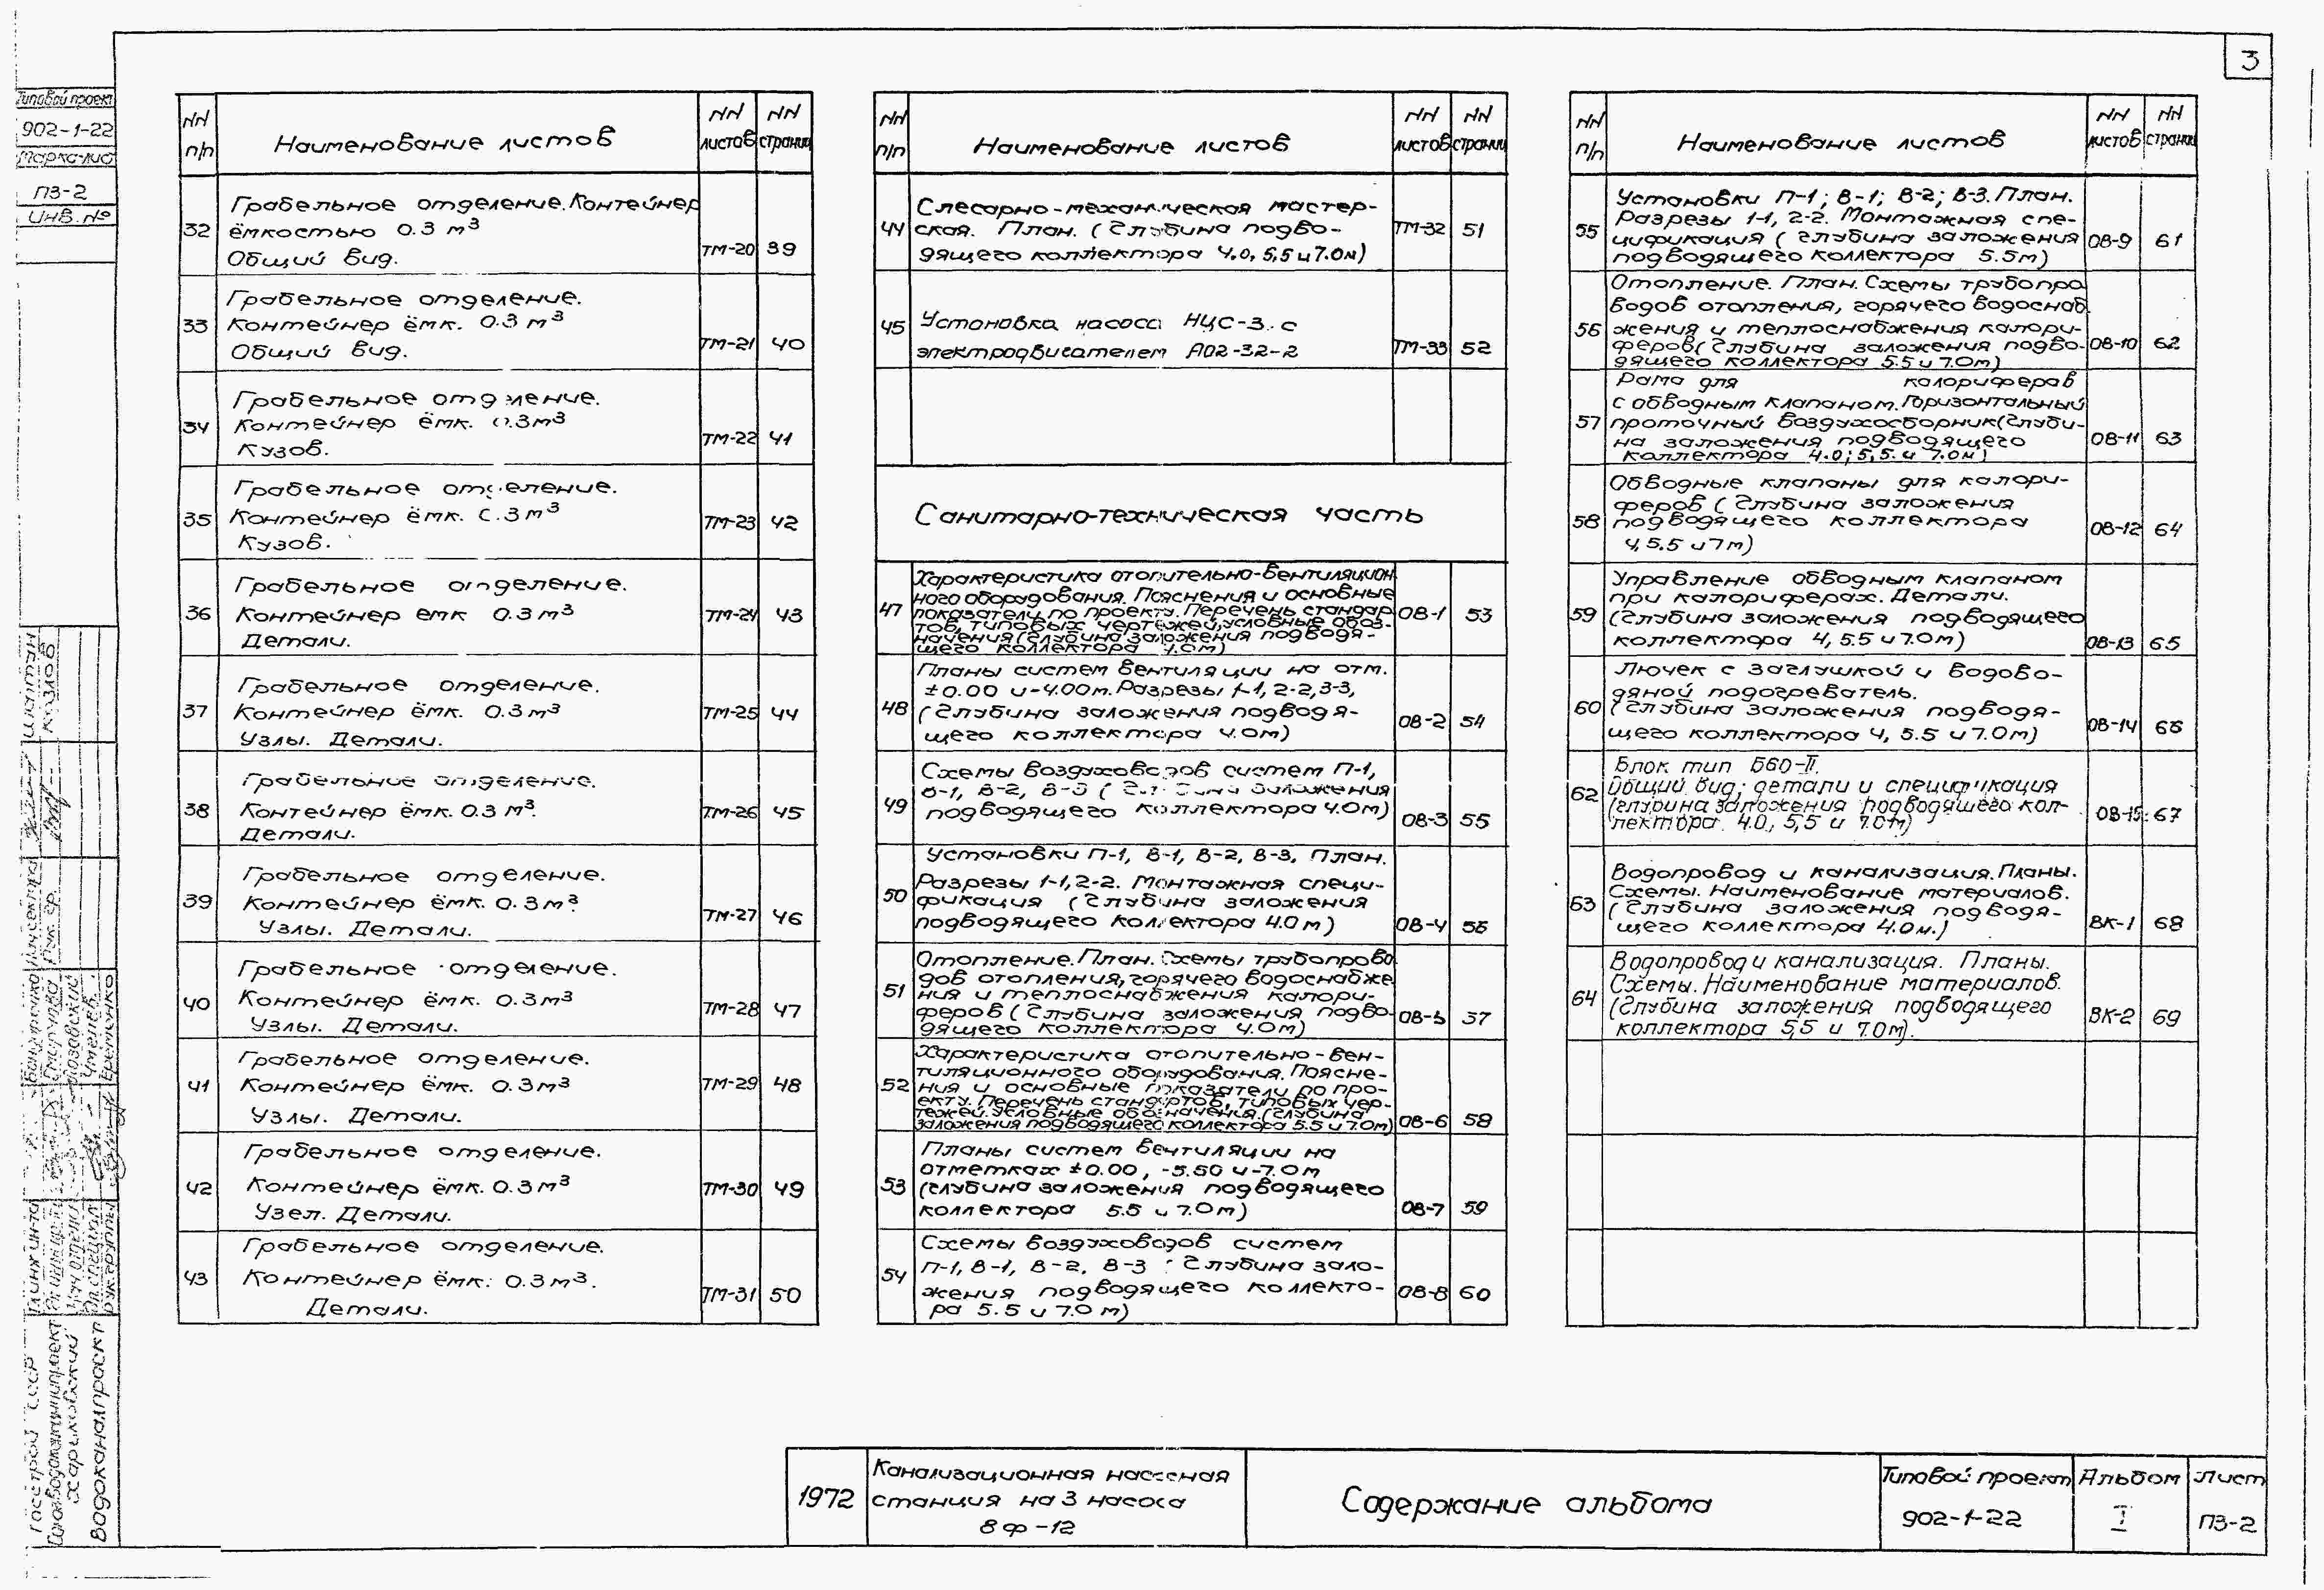 3
Типовой проект
902-1-22
Марка-лист
ПЗ-2
Инв. №
NN п/п
Наименование листов
NN листов
NN страниц
32
Грабельное отделение. Контейнер
ёмкостью 0.3 м³
Общий вид.
ТМ-20
39
33
Грабельное отделение.
Контейнер ёмк. 0.3 м³
Общий вид.
ТМ-21
40
34
Грабельное отделение.
Контейнер ёмк. 0.3 м³
Кузов.
ТМ-22
41
35
Грабельное отделение.
Контейнер ёмк. 0.3 м³
Кузов.
ТМ-23
42
36
Грабельное отделение.
Контейнер емк 0.3 м³
Детали.
ТМ-24
43
37
Грабельное отделение.
Контейнер ёмк. 0.3 м³
Узлы. Детали.
ТМ-25
44
38
Грабельное отделение.
Контейнер ёмк. 0.3 м³.
Детали.
ТМ-26
45
39
Грабельное отделение.
Контейнер ёмк. 0.3 м³.
Узлы. Детали.
ТМ-27
46
40
Грабельное отделение.
Контейнер ёмк. 0.3 м³
Узлы. Детали.
ТМ-28
47
41
Грабельное отделение.
Контейнер ёмк. 0.3 м³
Узлы. Детали.
ТМ-29
48
42
Грабельное отделение.
Контейнер ёмк. 0.3 м³
Узел. Детали.
ТМ-30
49
43
Грабельное отделение.
Контейнер ёмк. 0.3 м³.
Детали.
ТМ-31
50
NN п/п
Наименование листов
NN листов
NN страниц
44
Слесарно-механическая мастер-
ская. План. (Глубина подво-
дящего коллектора 4.0, 5,5 и 7.0м)
ТМ-32
51
45
Установка насоса НЦС-3 с
электродвигателем АО2-32-2
ТМ-33
52
Санитарно-техническая часть
47
Характеристика отопительно-вентиляцион
ного оборудования. Пояснения и основные
показатели по проекту. Перечень стандар
тов, типовых чертежей, условные обоз-
начения (глубина заложения подводя-
щего коллектора 4.0м)
ОВ-1
53
48
Планы систем вентиляции на отм.
±0.00 и -4.00м. Разрезы 1-1, 2-2, 3-3,
(Глубина заложения подводя-
щего коллектора 4.0м)
ОВ-2
54
49
Схемы воздуховодов систем П-1,
В-1, В-2, В-3 (Глубина заложения
подводящего коллектора 4.0м)
ОВ-3
55
50
Установки П-1, В-1, В-2, В-3, План.
Разрезы 1-1, 2-2. Монтажная специ-
фикация (Глубина заложения
подводящего коллектора 4.0 м)
ОВ-4
56
51
Отопление. План. Схемы трубопрово
дов отопления, горячего водоснабже
ния и теплоснабжения калори-
феров (Глубина заложения подво-
дящего коллектора 4.0м)
ОВ-5
57
52
Характеристика отопительно-вен-
тиляционного оборудования. Поясне-
ния и основные показатели по про-
екту. Перечень стандартов, типовых чер-
тежей. Условные обозначения. (Глубина
заложения подводящего коллектора 5.5 и 7.0м)
ОВ-6
58
53
Планы систем вентиляции на
отметках ±0.00, -5.50 и -7.0м
(глубина заложения подводящего
коллектора 5.5 и 7.0м)
ОВ-7
59
54
Схемы воздуховодов систем
П-1, В-1, В-2, В-3 (Глубина зало-
жения подводящего коллекто-
ра 5.5 и 7.0 м)
ОВ-8
60
NN п/п
Наименование листов
NN листов
NN страниц
55
Установки П-1; В-1; В-2; В-3. План.
Разрезы 1-1, 2-2. Монтажная спе-
цификация (глубина заложения
подводящего коллектора 5.5м)
ОВ-9
61
56
Отопление. План. Схемы трубопро
водов отопления, горячего водоснаб.
жения и теплоснабжения калори-
феров (Глубина заложения подво-
дящего коллектора 5.5 и 7.0м)
ОВ-10
62
57
Рама для калориферав
с обводным клапаном. Горизонтальный
проточный воздухосборник (Глуби-
на заложения подводящего
коллектора 4.0; 5,5. и 7.0м)
ОВ-11
63
58
Обводные клапаны для калори-
феров (Глубина заложения
подводящего коллектора
4, 5.5 и 7м)
ОВ-12
64
59
Управление обводным клапаном
при калориферах. Детали.
(Глубина заложения подводящего
коллектора 4, 5.5 и 7.0м)
ОВ-13
65
60
Лючек с заглушкой и водово-
дяной подогреватель.
(Глубина заложения подводя-
щего коллектора 4, 5.5 и 7.0м)
ОВ-14
66
62
Блок тип Б60-II.
Общий вид; детали и спецификация
(глубина заложения подводящего кол-
лектора 4.0, 5,5 и 7.0м)
ОВ-15
67
63
Водопровод и канализация. Планы.
Схемы. Наименование материалов.
(Глубина заложения подводя-
щего коллектора 4.0м.)
ВК-1
68
64
Водопровод и канализация. Планы.
Схемы. Наименование материалов.
(Глубина заложения подводящего
коллектора 5,5 и 7.0м).
ВК-2
69
Госстрой СССР
Союзводоканалниипроект
Харьковский
Водоканалпроект
1972
Канализационная насосная
станция на 3 насоса
8 Ф-12
Содержание альбома
Типовой проект
902-1-22
Альбом
I
Лист
ПЗ-2